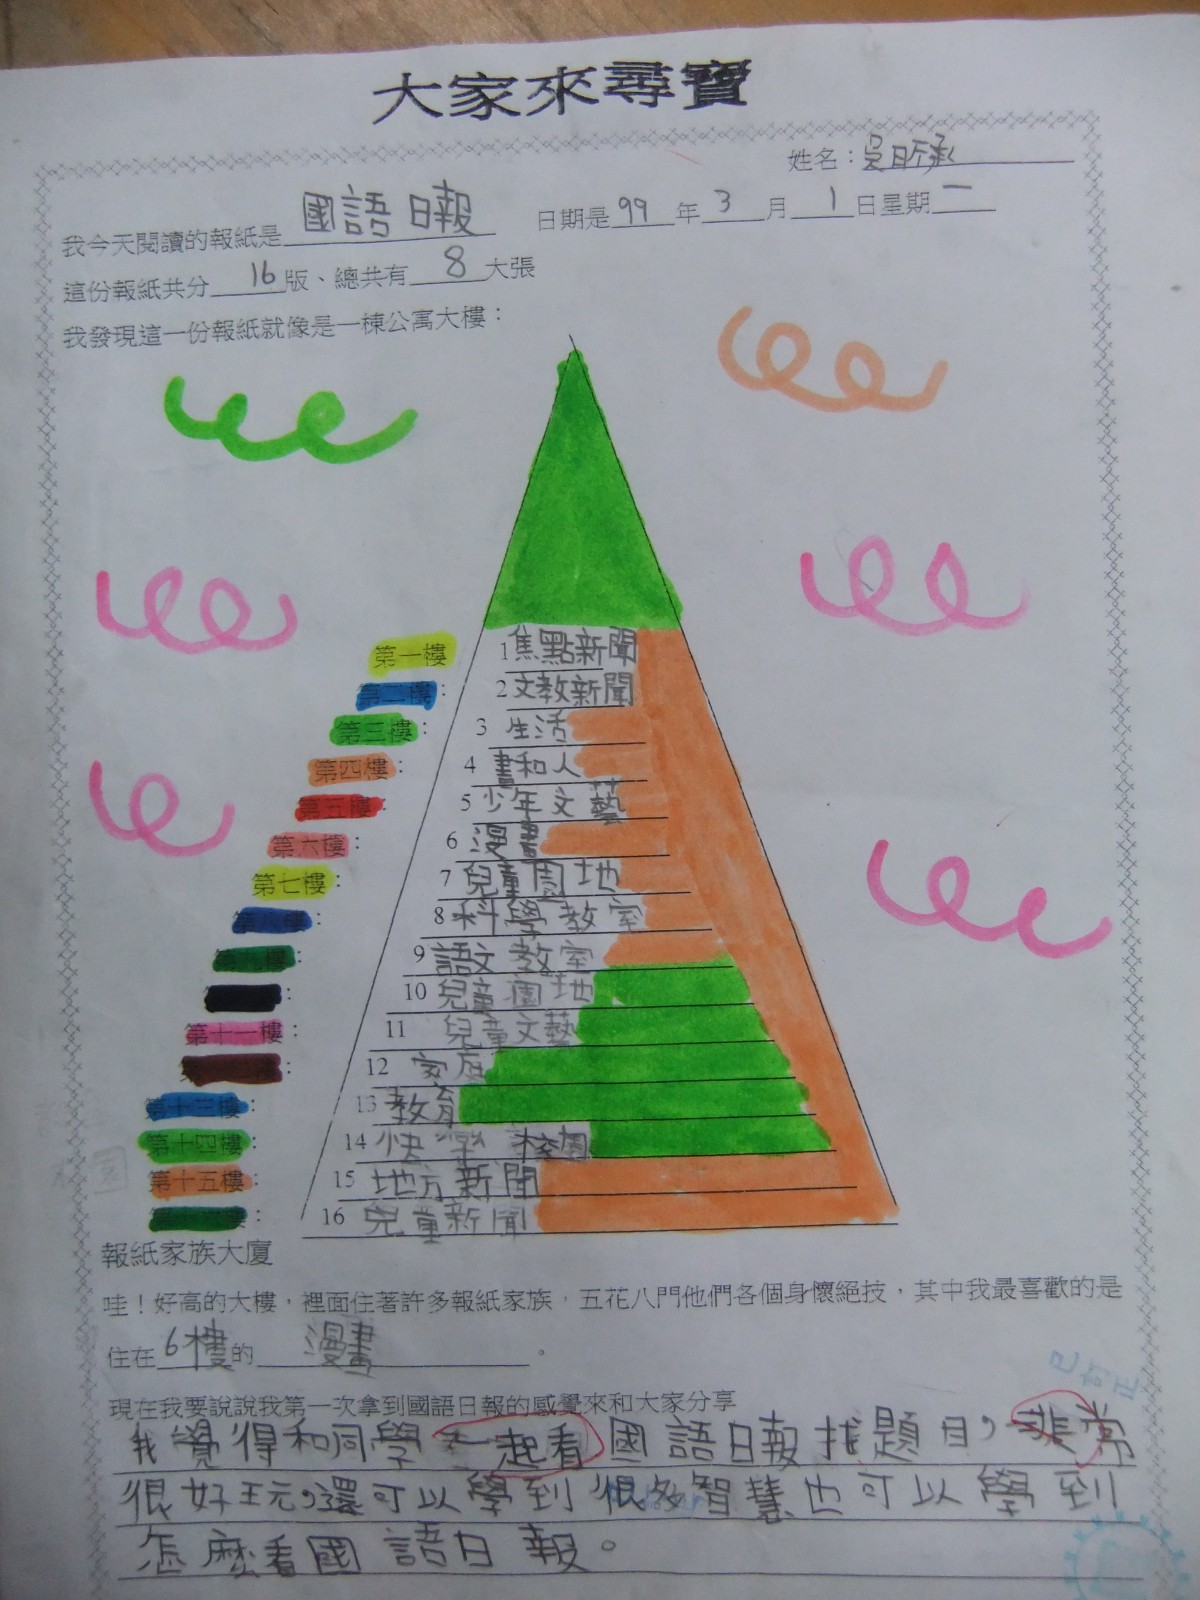 大家來尋寶
姓名：吳昕承
我今天閱讀的報紙是國語日報 日期是99年3月1日星期一
這份報紙共分16版、總共有8大張
我發現這一份報紙就像是一棟公寓大樓：
第一樓 1焦點新聞
第二樓： 2文教新聞
第三樓： 3生活
第四樓： 4書和人
第五樓： 5少年文藝
第六樓： 6漫畫
第七樓： 7兒童園地
第八樓： 8科學教室
第九樓： 9語文教室
： 10兒童園地
第十一樓： 11兒童文藝
樓： 12家庭
第十三樓： 13教育
第十四樓： 14快樂校園
第十五樓： 15地方新聞
樓： 16兒童新聞
報紙家族大廈
哇！好高的大樓，裡面住著許多報紙家族，五花八門他們各個身懷絕技，其中我最喜歡的是
住在6樓的漫畫。
現在我要說說我第一次拿到國語日報的感覺來和大家分享
已訂正
我覺得和同學一起看國語日報找題目，非常
很好玩，還可以學到很多智慧也可以學到
怎麼看國語日報。